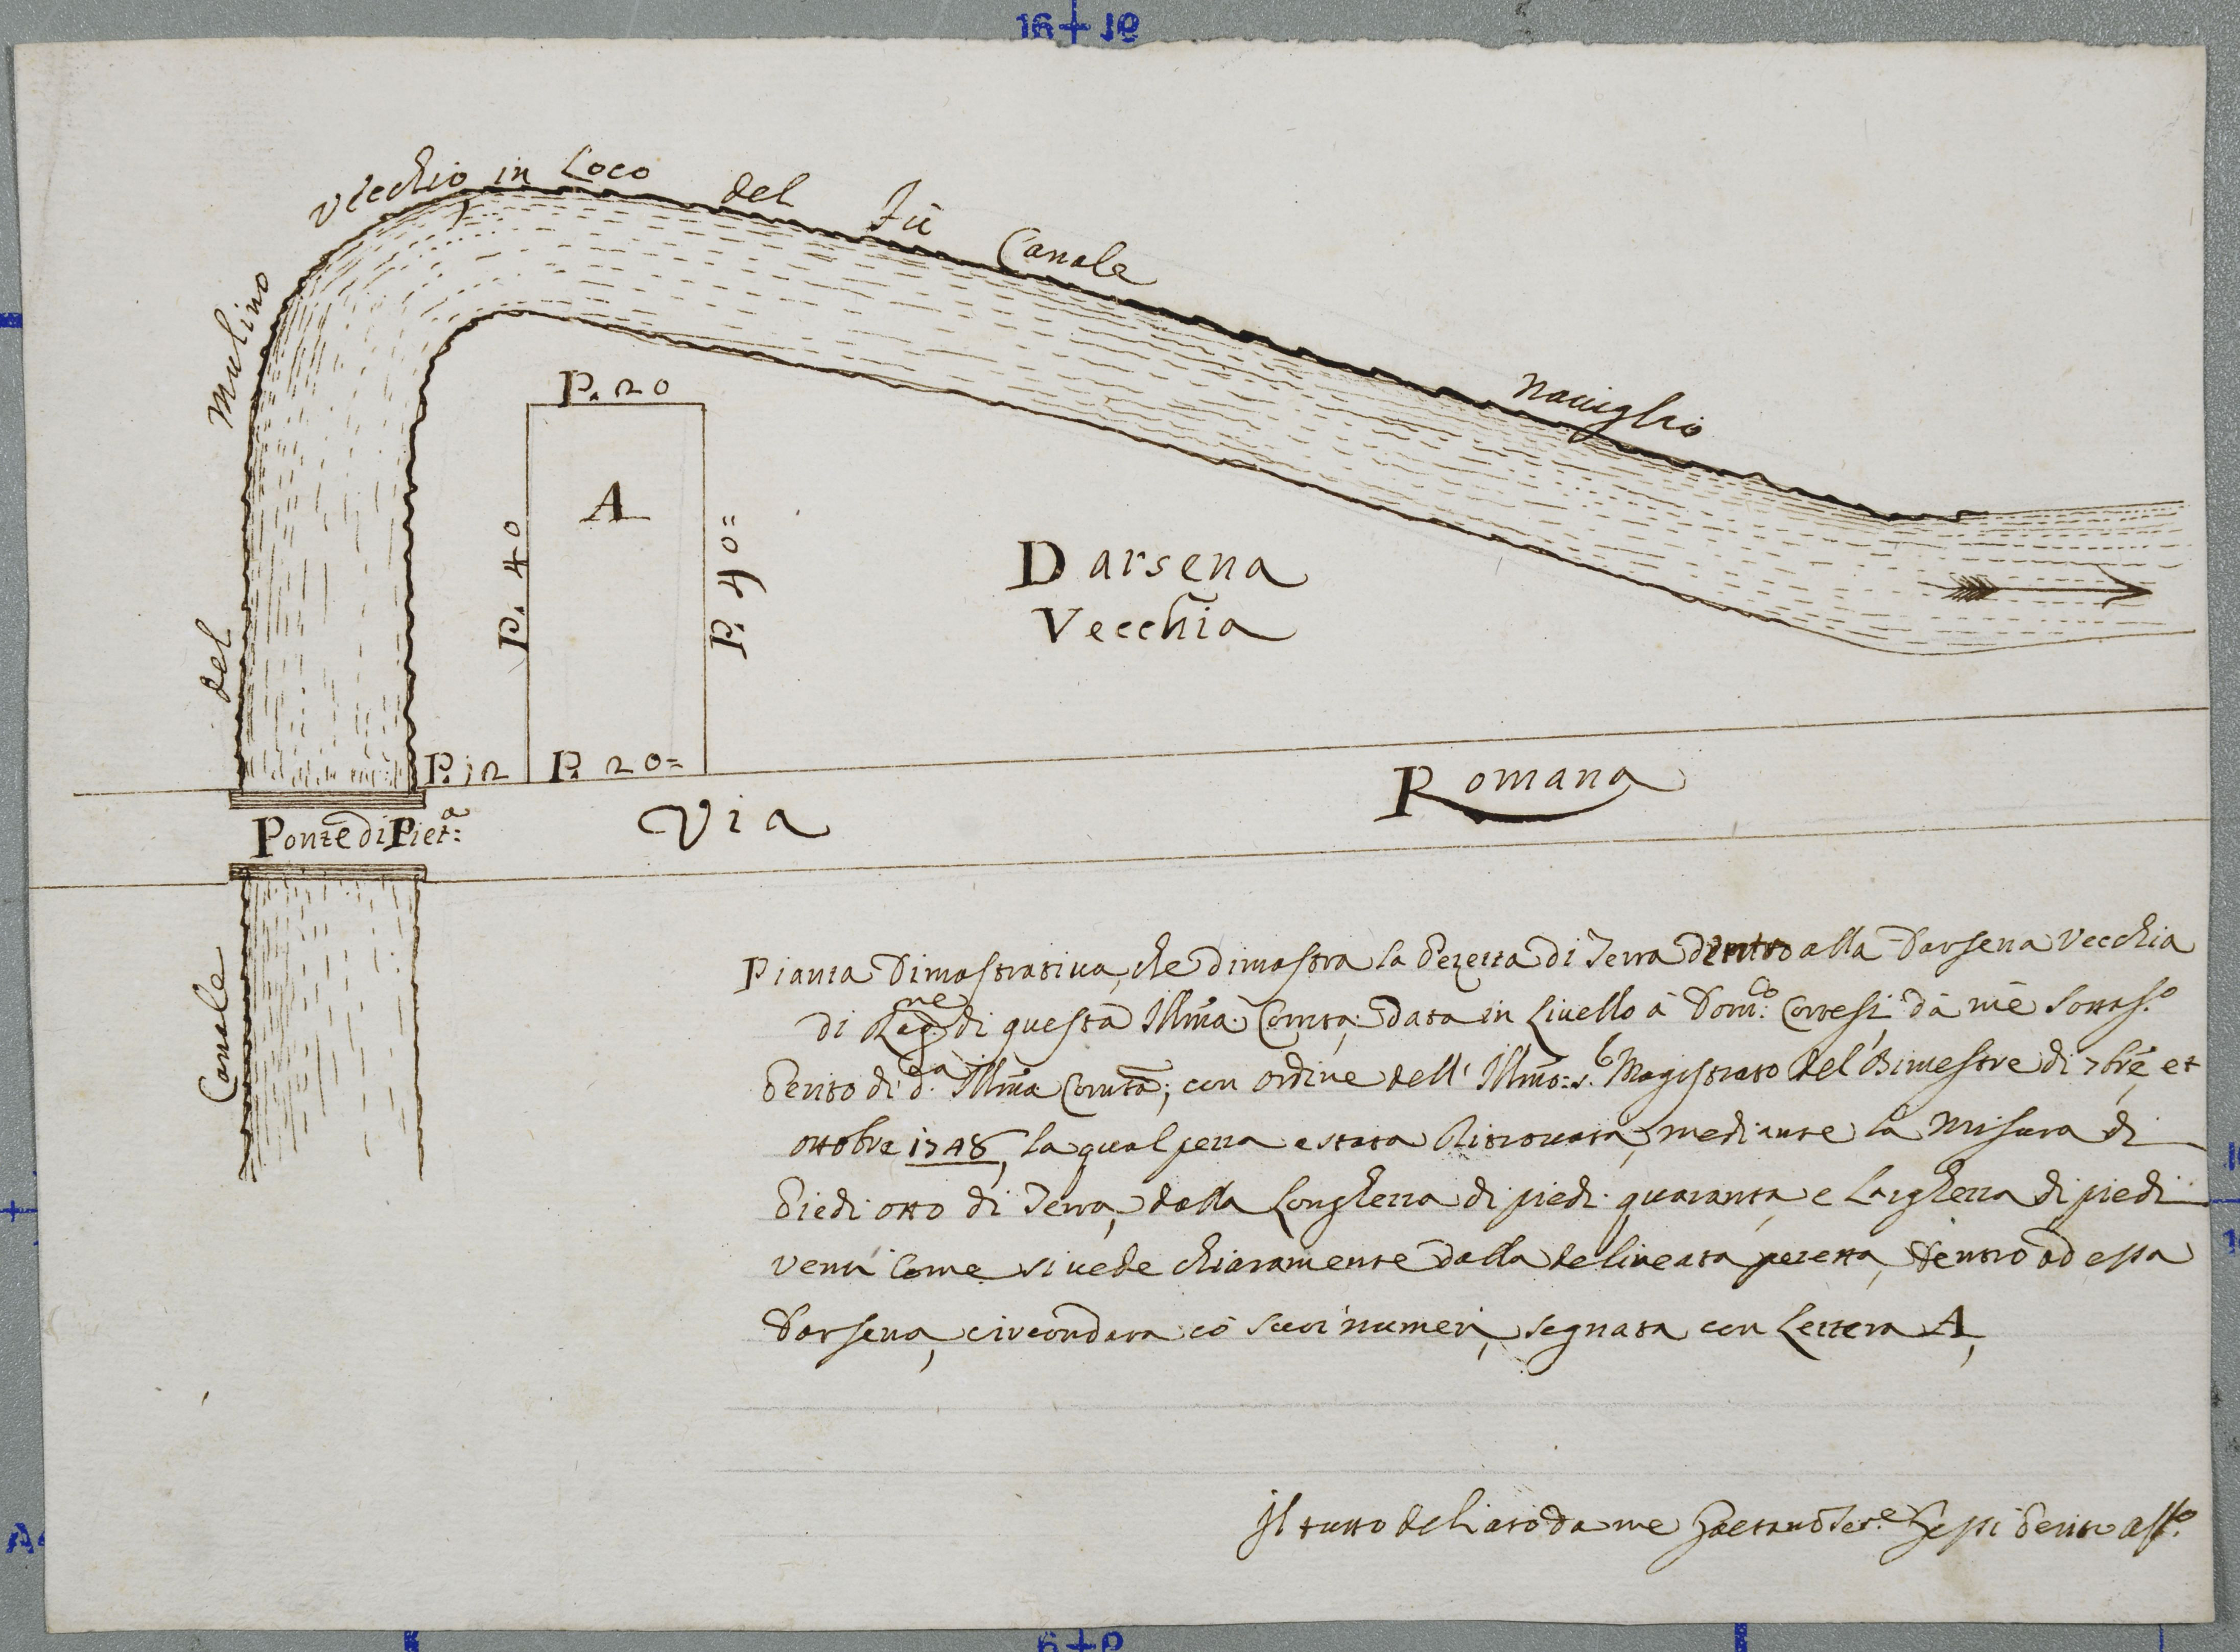 Canale del Mulino Vecchio in Loco del Fù Canale Naviglio
P. 20
A
P. 40
P. 40=
Darsena
Vecchia
P. 12
P. 20=
Via Romana
Ponte di Piet:a
Pianta Dimostrativa, che dimostra la Pezetta di Terra dentro alla Darsena Vecchia
di questa Illma: Comtà: data in Livello à Dom:co Cortesi da mè Sottos.o
Perito di d.a Illma Comtà; con ordine dell' Illmo: Magistrato del Bimestre di 7bre, et
ottobre 1748, la qual pezza e stata Ritrovata, mediante la Misura di
Piedi otto di Terra, della Longhezza di piedi quaranta, e Larghezza di piedi
venti Come si vede chiaramente dalla delineata pezetta, dentro ad essa
Darsena, circondata cō suoi numeri, segnata con Lettera A,
Il tutto da me Gaetano Perito